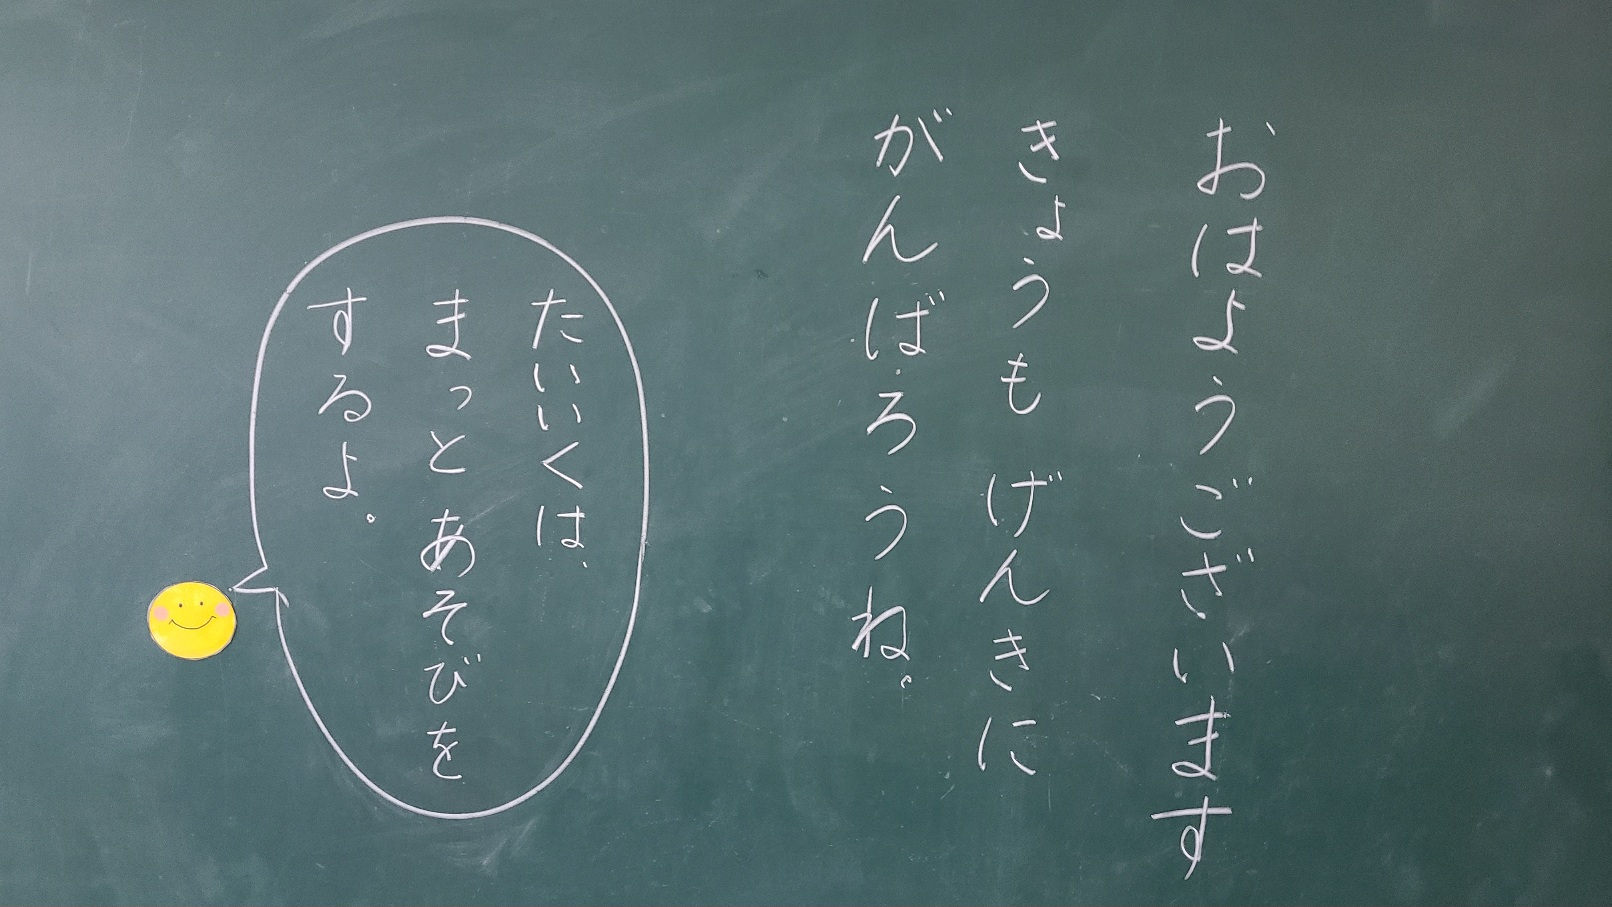 おはようございます
きょうも げんきに
がんばろうね。
たいいくは、
まっと あそびを
するよ。